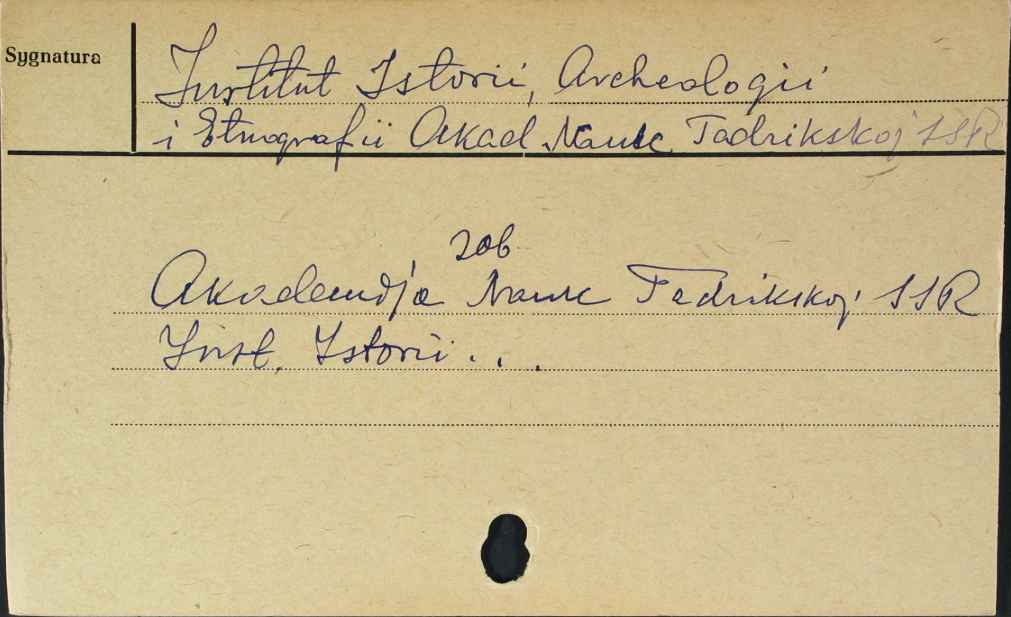 Sygnatura
Institut Istorii, Archeologii
i Etnografii Akad. Nauk Tadzikskoj SSR
zob
Akademija Nauk Tadzikskoj SSR
Inst. Istorii . . .